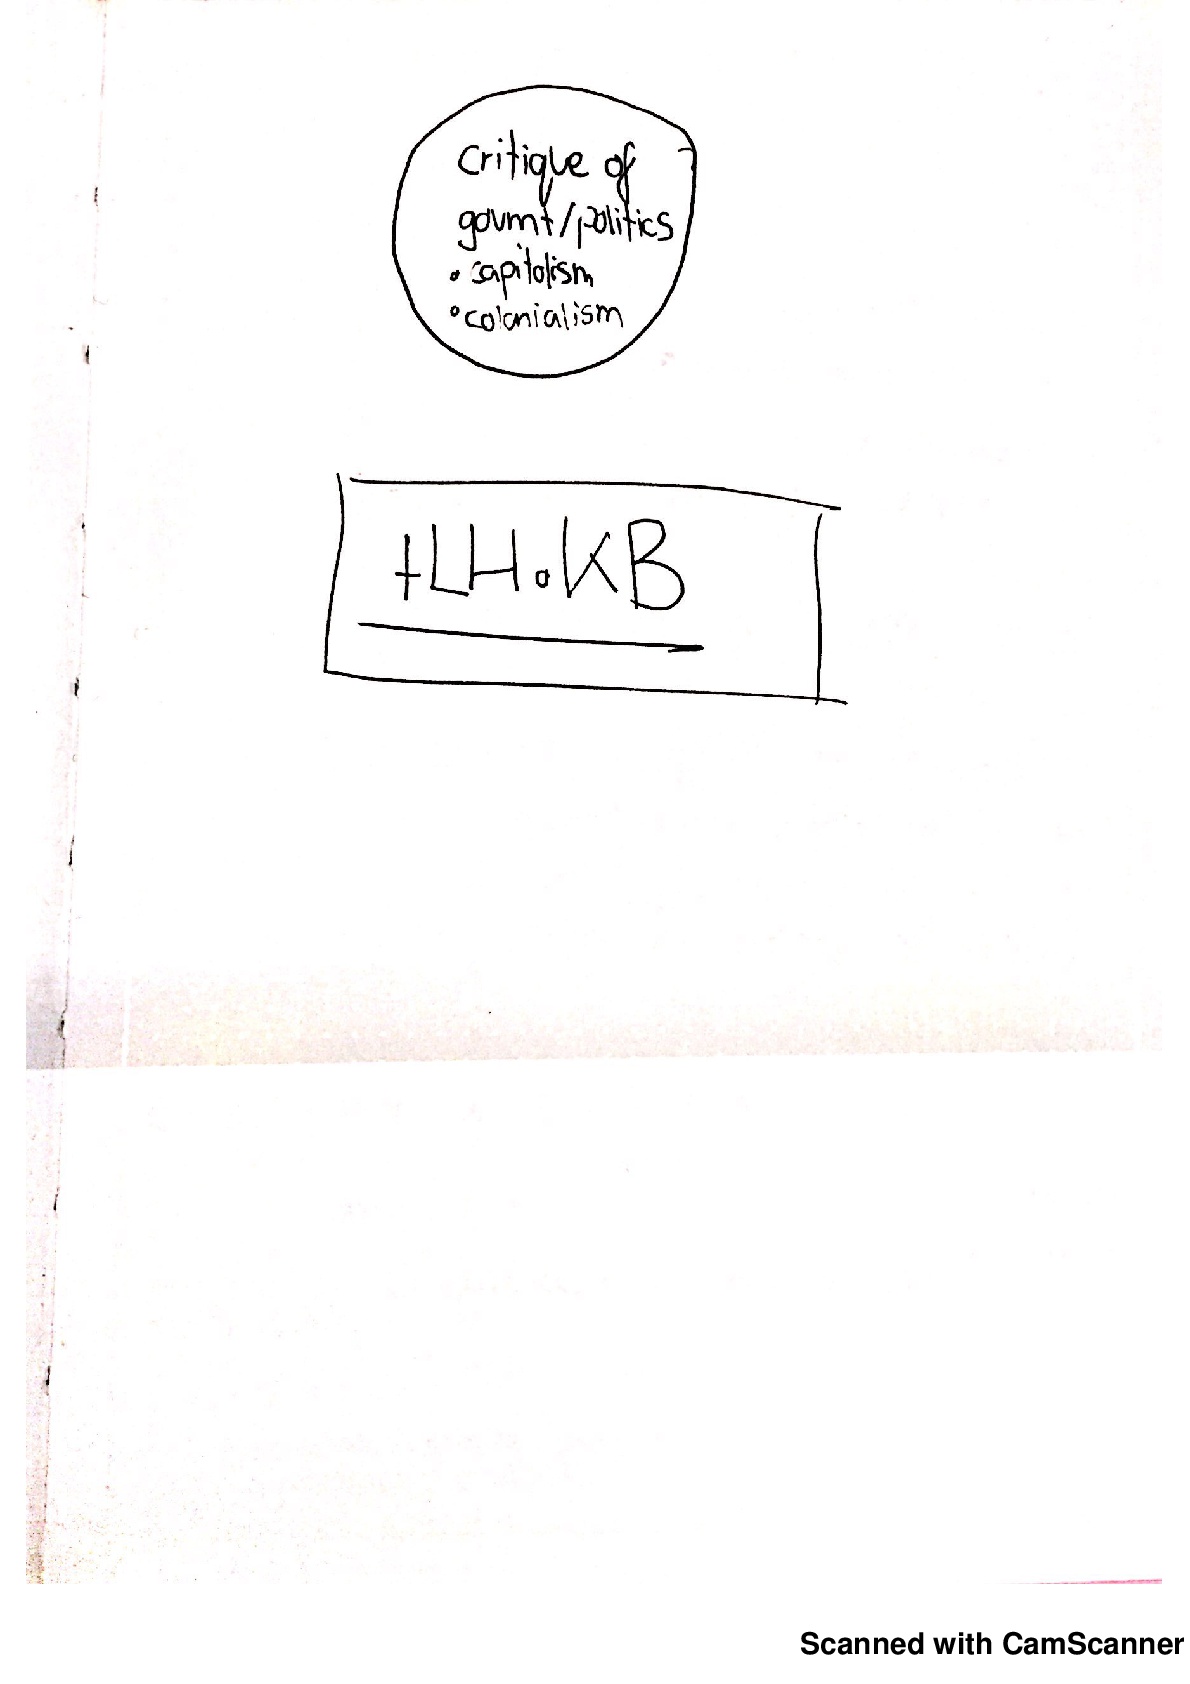 critique of
govmt/politics
• capitalism
• colonialism
tLH.KB
Scanned with CamScanner